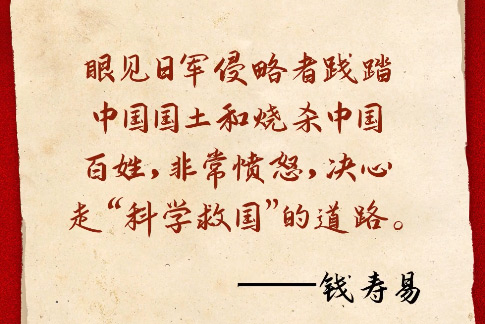 眼见日军侵略者践踏
中国国土和烧杀中国
百姓，非常愤怒，决心
走“科学救国”的道路。
——钱寿易